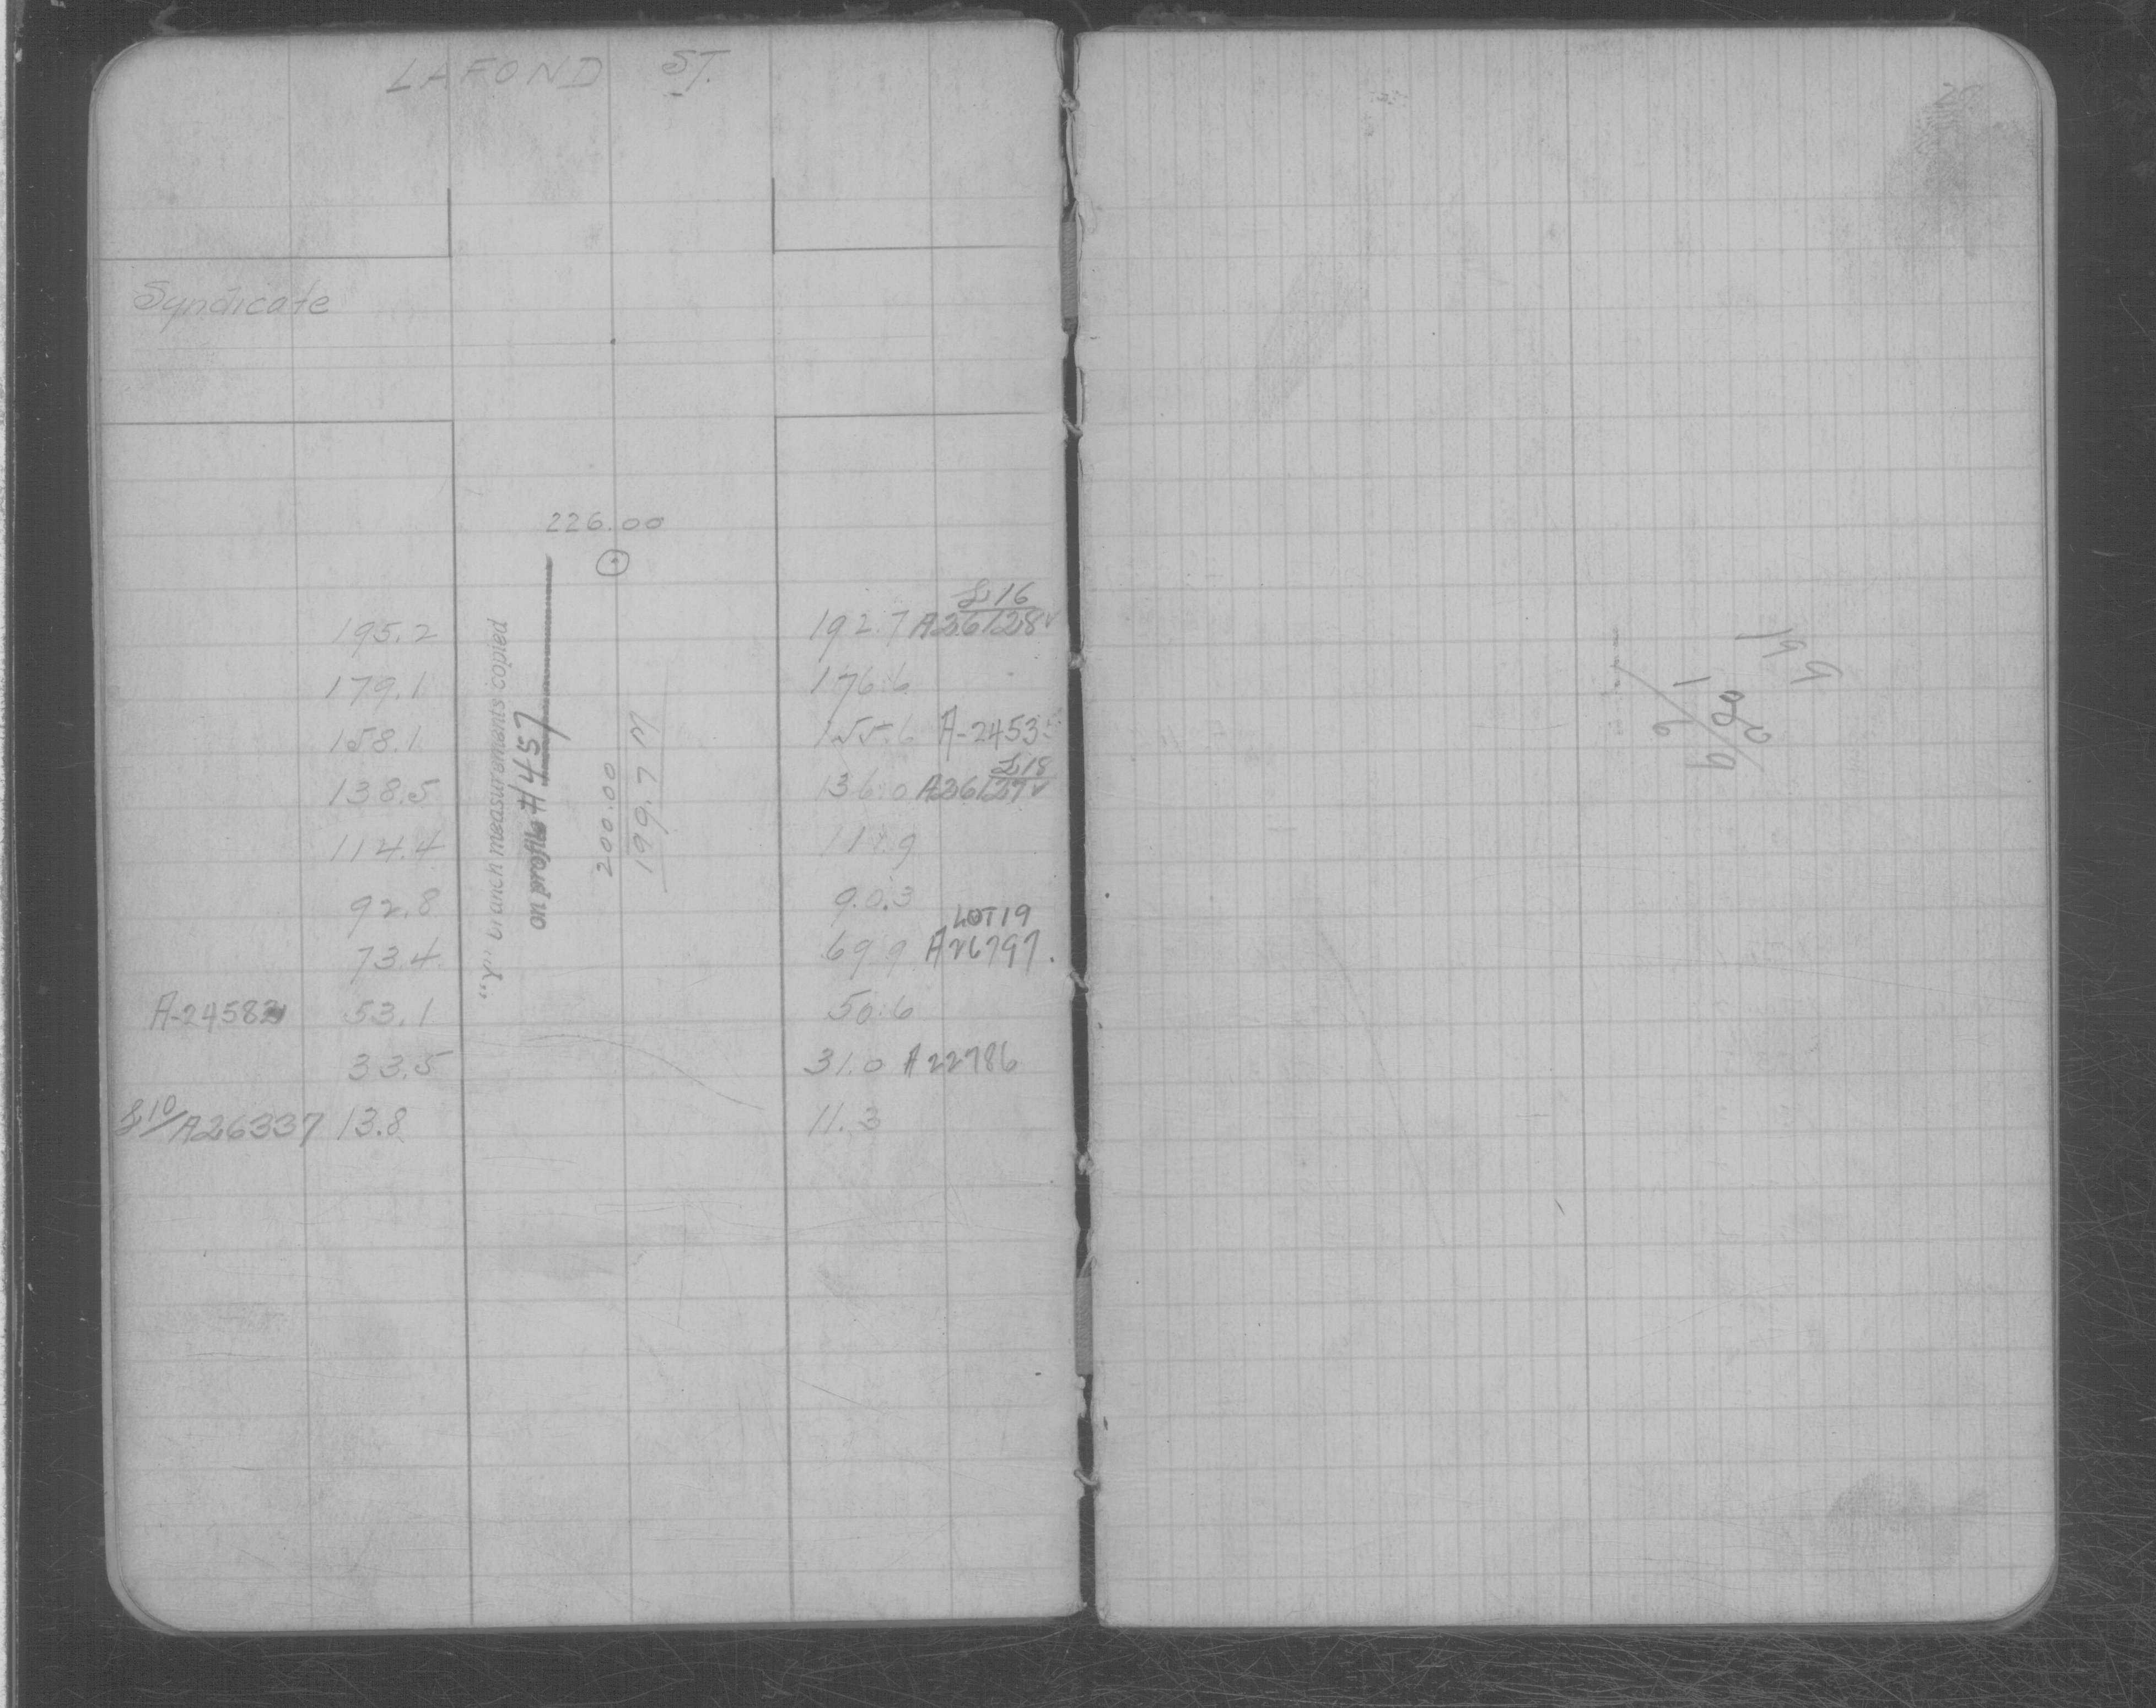 LAFOND ST.
Syndicate
226.00
L16
195.2 192.7 A26128✓
179.1 176.6
158.1 155.6 A-2453
L18
138.5 136.0 A26127✓
114.4 111.9
92.8 90.3
LOT 19
73.4 69.9 A26797.
A-24582 53.1 50.6
33.5 31.0 A22786
L10/A26337 13.8 11.3
"Y" branch measurements copied
on profile #457
200.00
199.7 M